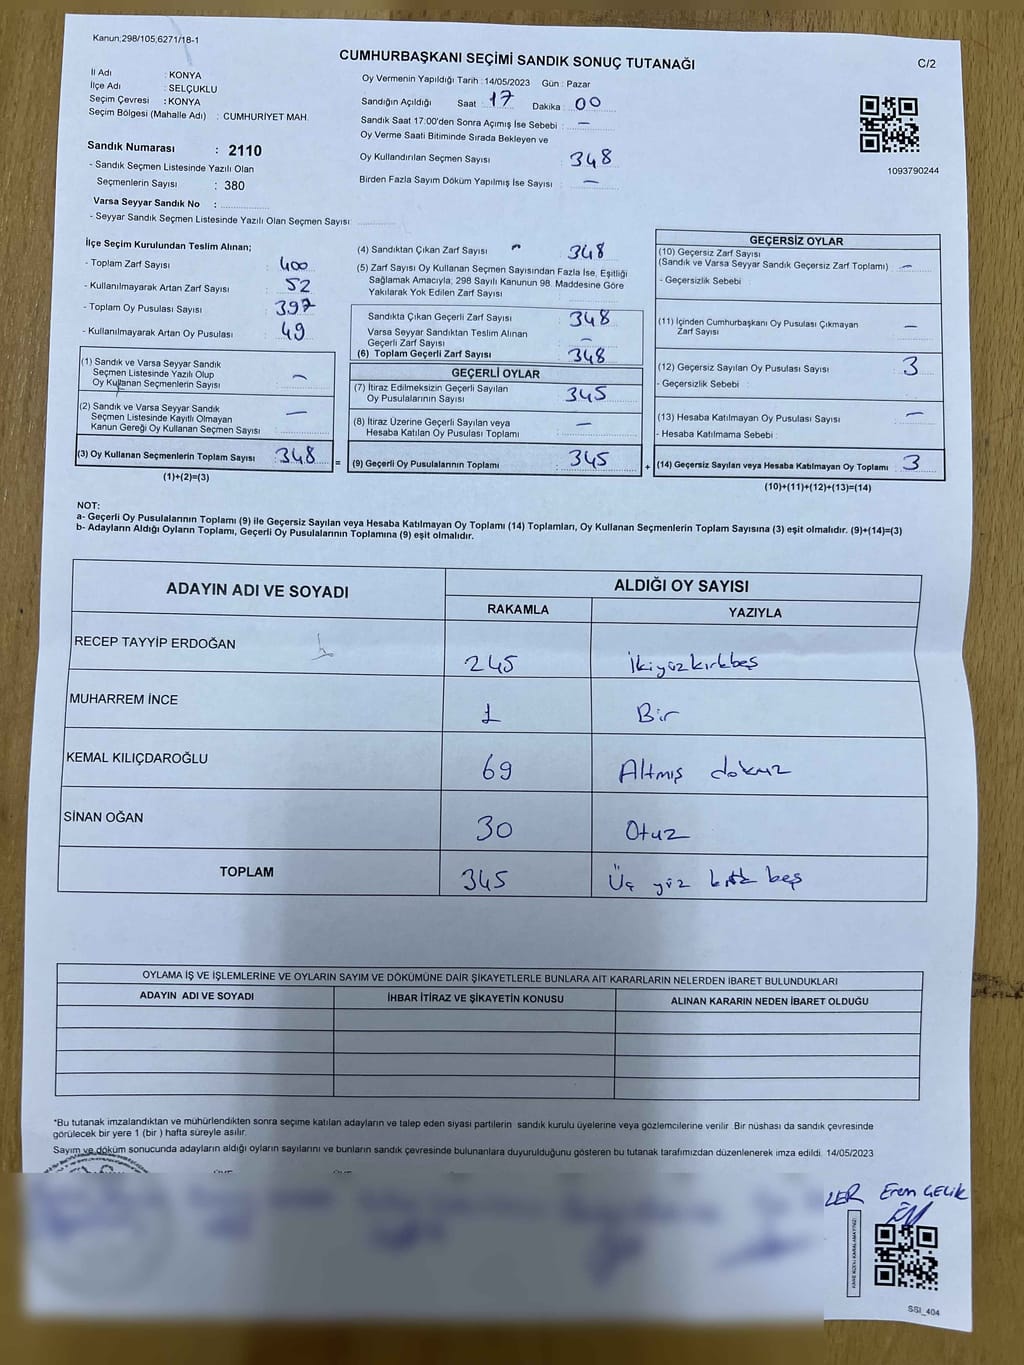 Kanun;298/105,6271/18-1
CUMHURBAŞKANI SEÇİMİ SANDIK SONUÇ TUTANAĞI
C/2
İl Adı : KONYA
İlçe Adı : SELÇUKLU
Seçim Çevresi : KONYA
Seçim Bölgesi (Mahalle Adı) : CUMHURİYET MAH.
Sandık Numarası : 2110
- Sandık Seçmen Listesinde Yazılı Olan
Seçmenlerin Sayısı : 380
Varsa Seyyar Sandık No :
- Seyyar Sandık Seçmen Listesinde Yazılı Olan Seçmen Sayısı:
Oy Vermenin Yapıldığı Tarih : 14/05/2023 Gün : Pazar
Sandığın Açıldığı Saat : 17 Dakika : 00
Sandık Saat 17:00'den Sonra Açımış İse Sebebi : —
Oy Verme Saati Bitiminde Sırada Bekleyen ve
Oy Kullandırılan Seçmen Sayısı : 348
Birden Fazla Sayım Döküm Yapılmış İse Sayısı : —
1093790244
İlçe Seçim Kurulundan Teslim Alınan;
- Toplam Zarf Sayısı : 400
- Kullanılmayarak Artan Zarf Sayısı : 52
- Toplam Oy Pusulası Sayısı : 397
- Kullanılmayarak Artan Oy Pusulası : 49
(1) Sandık ve Varsa Seyyar Sandık
Seçmen Listesinde Yazılı Olup
Oy Kullanan Seçmenlerin Sayısı : —
(2) Sandık ve Varsa Seyyar Sandık
Seçmen Listesinde Kayıtlı Olmayan
Kanun Gereği Oy Kullanan Seçmen Sayısı : —
(3) Oy Kullanan Seçmenlerin Toplam Sayısı : 348
(1)+(2)=(3)
(4) Sandıktan Çıkan Zarf Sayısı : 348
(5) Zarf Sayısı Oy Kullanan Seçmen Sayısından Fazla İse, Eşitliği
Sağlamak Amacıyla, 298 Sayılı Kanunun 98. Maddesine Göre
Yakılarak Yok Edilen Zarf Sayısı :
Sandıkta Çıkan Geçerli Zarf Sayısı : 348
Varsa Seyyar Sandıktan Teslim Alınan
Geçerli Zarf Sayısı : —
(6) Toplam Geçerli Zarf Sayısı : 348
GEÇERLİ OYLAR
(7) İtiraz Edilmeksizin Geçerli Sayılan
Oy Pusulalarının Sayısı : 345
(8) İtiraz Üzerine Geçerli Sayılan veya
Hesaba Katılan Oy Pusulası Toplamı : —
= (9) Geçerli Oy Pusulalarının Toplamı : 345
GEÇERSİZ OYLAR
(10) Geçersiz Zarf Sayısı
(Sandık ve Varsa Seyyar Sandık Geçersiz Zarf Toplamı) : —
- Geçersizlik Sebebi :
(11) İçinden Cumhurbaşkanı Oy Pusulası Çıkmayan
Zarf Sayısı : —
(12) Geçersiz Sayılan Oy Pusulası Sayısı : 3
- Geçersizlik Sebebi :
(13) Hesaba Katılmayan Oy Pusulası Sayısı : —
- Hesaba Katılmama Sebebi :
+ (14) Geçersiz Sayılan veya Hesaba Katılmayan Oy Toplamı : 3
(10)+(11)+(12)+(13)=(14)
NOT:
a- Geçerli Oy Pusulalarının Toplamı (9) ile Geçersiz Sayılan veya Hesaba Katılmayan Oy Toplamı (14) Toplamları, Oy Kullanan Seçmenlerin Toplam Sayısına (3) eşit olmalıdır. (9)+(14)=(3)
b- Adayların Aldığı Oyların Toplamı, Geçerli Oy Pusulalarının Toplamına (9) eşit olmalıdır.
ADAYIN ADI VE SOYADI ALDIĞI OY SAYISI
RAKAMLA YAZIYLA
RECEP TAYYİP ERDOĞAN 245 İkiyüzkırkbeş
MUHARREM İNCE 1 Bir
KEMAL KILIÇDAROĞLU 69 Altmış dokuz
SİNAN OĞAN 30 Otuz
TOPLAM 345 Üç yüz kırk beş
OYLAMA İŞ VE İŞLEMLERİNE VE OYLARIN SAYIM VE DÖKÜMÜNE DAİR ŞİKAYETLERLE BUNLARA AİT KARARLARIN NELERDEN İBARET BULUNDUKLARI
ADAYIN ADI VE SOYADI İHBAR İTİRAZ VE ŞİKAYETİN KONUSU ALINAN KARARIN NEDEN İBARET OLDUĞU
*Bu tutanak imzalandıktan ve mühürlendikten sonra seçime katılan adayların ve talep eden siyasi partilerin sandık kurulu üyelerine veya gözlemcilerine verilir. Bir nüshası da sandık çevresinde
görülecek bir yere 1 (bir ) hafta süreyle asılır.
Sayım ve döküm sonucunda adayların aldığı oyların sayılarını ve bunların sandık çevresinde bulunanlara duyurulduğunu gösteren bu tutanak tarafımızdan düzenlenerek imza edildi. 14/05/2023
LER Eren ÇELİK
SSI_404